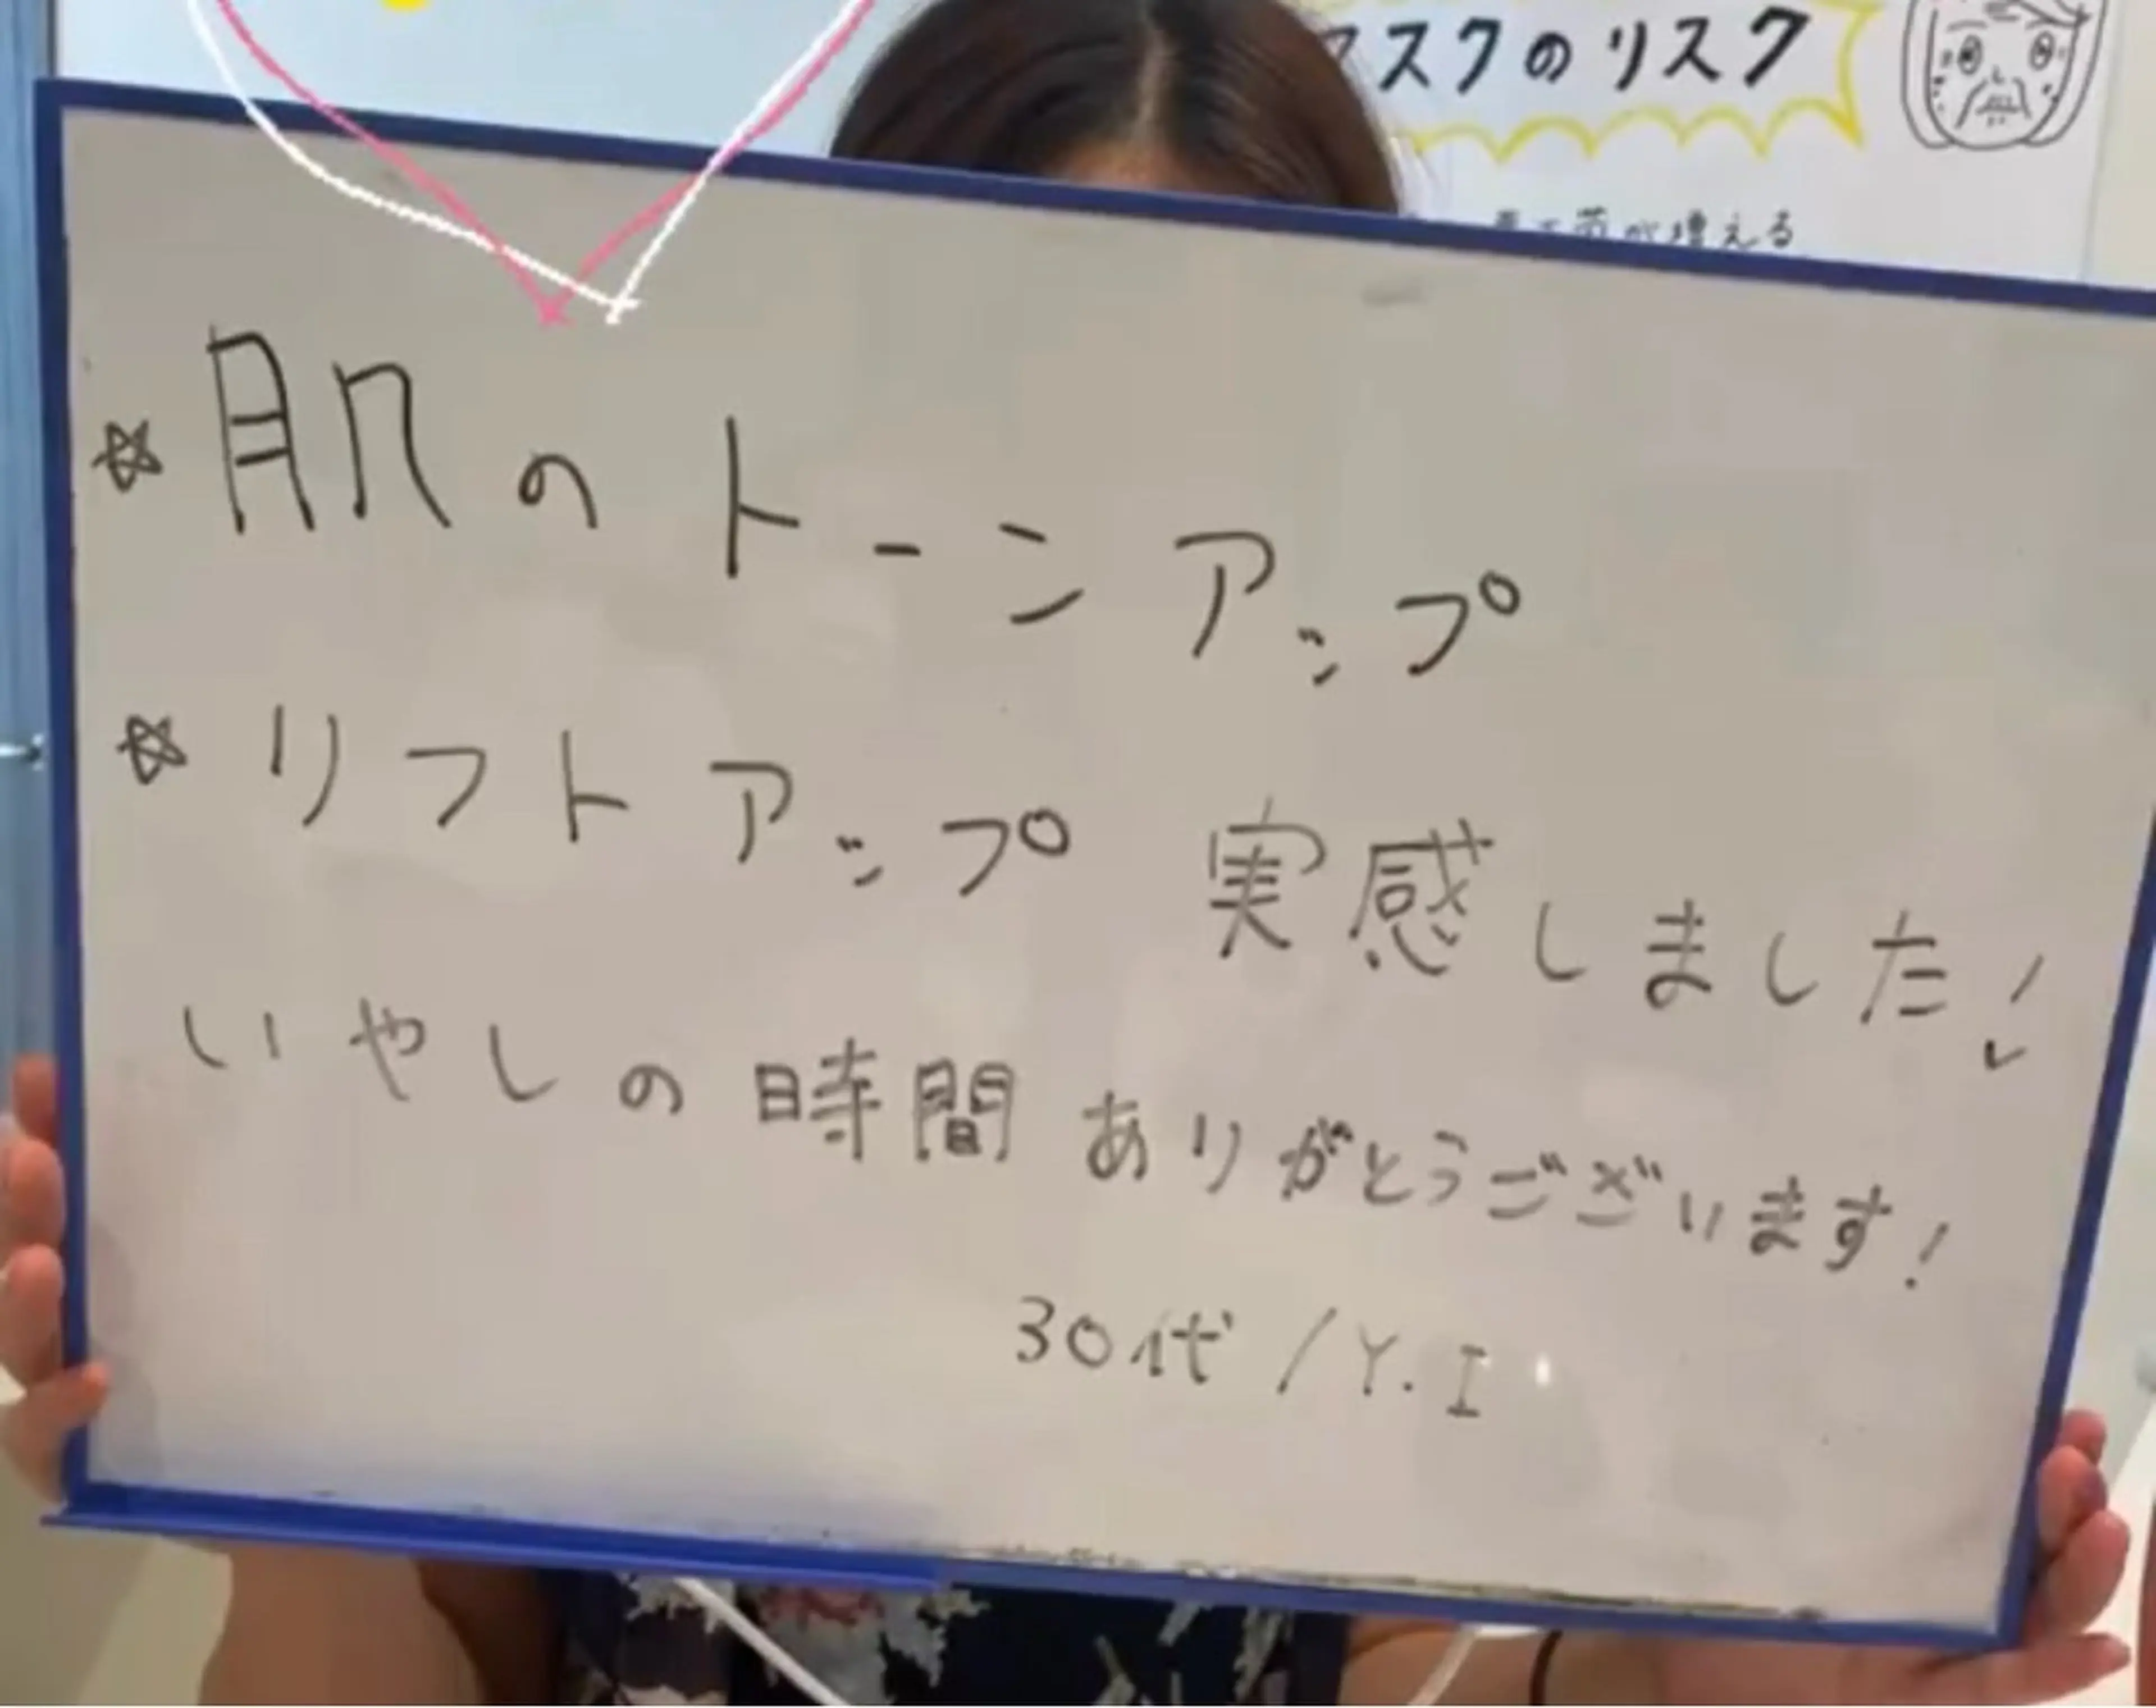 マスクのリスク
が増える
☆肌のトーンアップ
☆リフトアップ 実感しました!
いやしの時間 ありがとうございます!
30代/Y.I